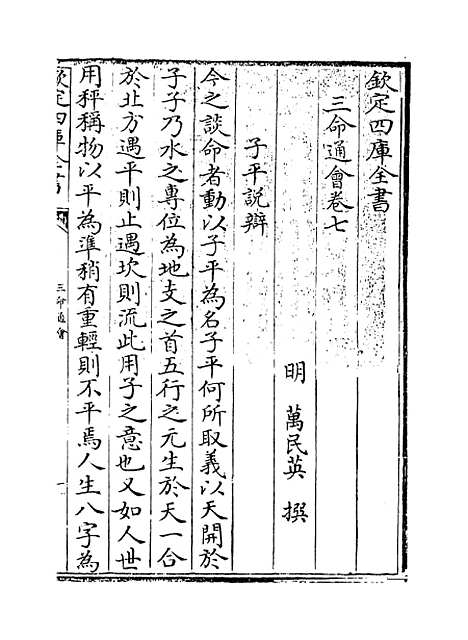 欽定四庫全書
三命通會卷七
明 萬民英 撰
子平說辯
今之談命者動以子平為名子平何所取義以天開於
子子乃水之專位為地支之首五行之元生於天一合
於北方遇平則止遇坎則流此用子之意也又如人世
用秤稱物以平為準稍有重輕則不平焉人生八字為
欽定四庫全書
三命通會
一